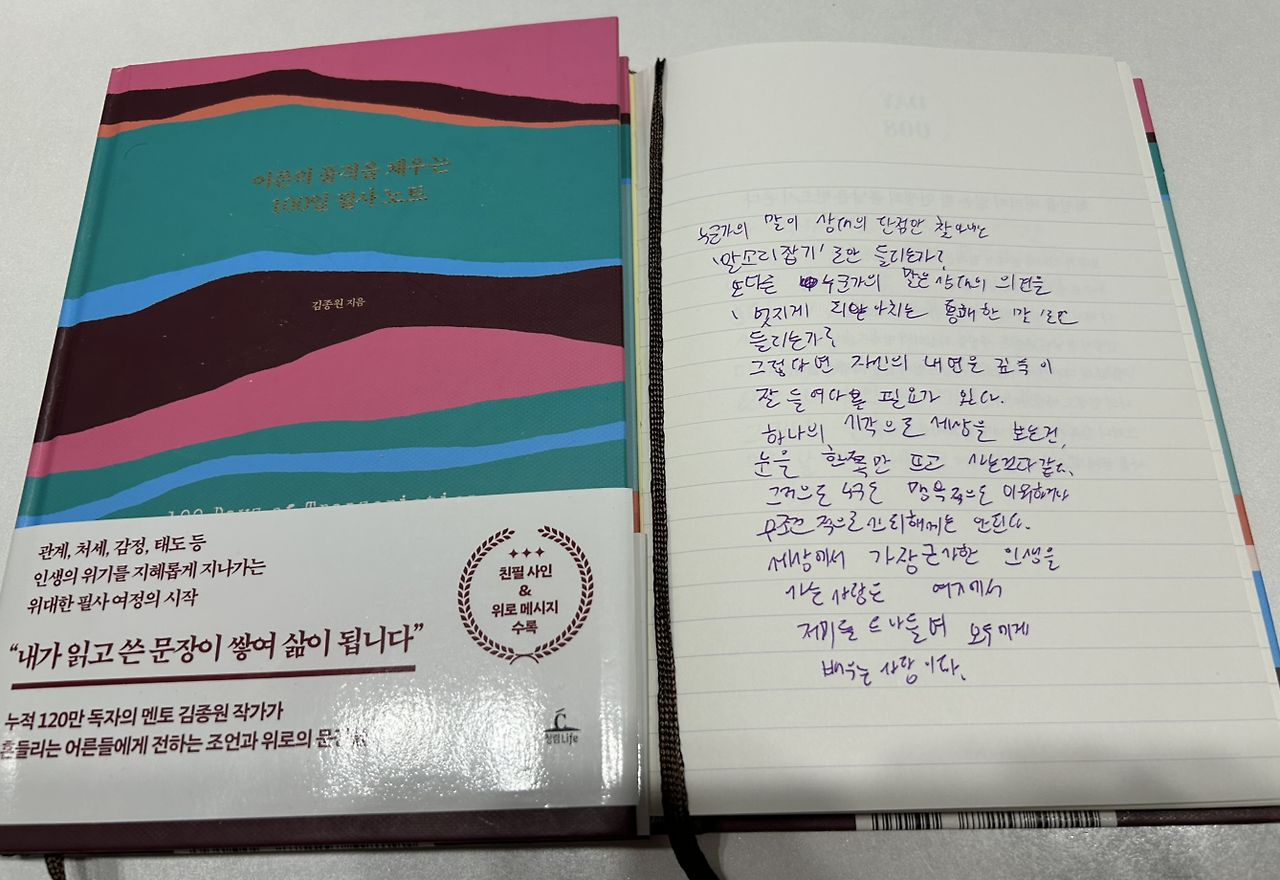 어른의 품격을 채우는
100일 필사 노트
김종원 지음
100 Days of
관계, 처세, 감정, 태도 등
인생의 위기를 지혜롭게 지나가는
위대한 필사 여정의 시작
“내가 읽고 쓴 문장이 쌓여 삶이 됩니다”
누적 120만 독자의 멘토 김종원 작가가
흔들리는 어른들에게 전하는 조언과 위로의
친필 사인
&
위로 메시지
수록
청림Life
DAY
008
누군가의 말이 상대의 단점만 찾아내는
'말소리잡기'로만 들리는가?
또다른 누군가의 말은 상대의 의견을
멋지게 되받아치는 통쾌한 말로만
들리는가?
그렇다면 자신의 내면을 깊숙이
잘 들여다볼 필요가 있다.
하나의 시각으로 세상을 보는건,
눈을 한쪽만 뜨고 사는것과같다.
그것으로 누구든 맹목적으로 미워하거나
무조건적으로 신뢰해서는 안된다.
세상에서 가장근사한 인생을
사는 사람은
드나들며 모두에게
배우는 사람이다.